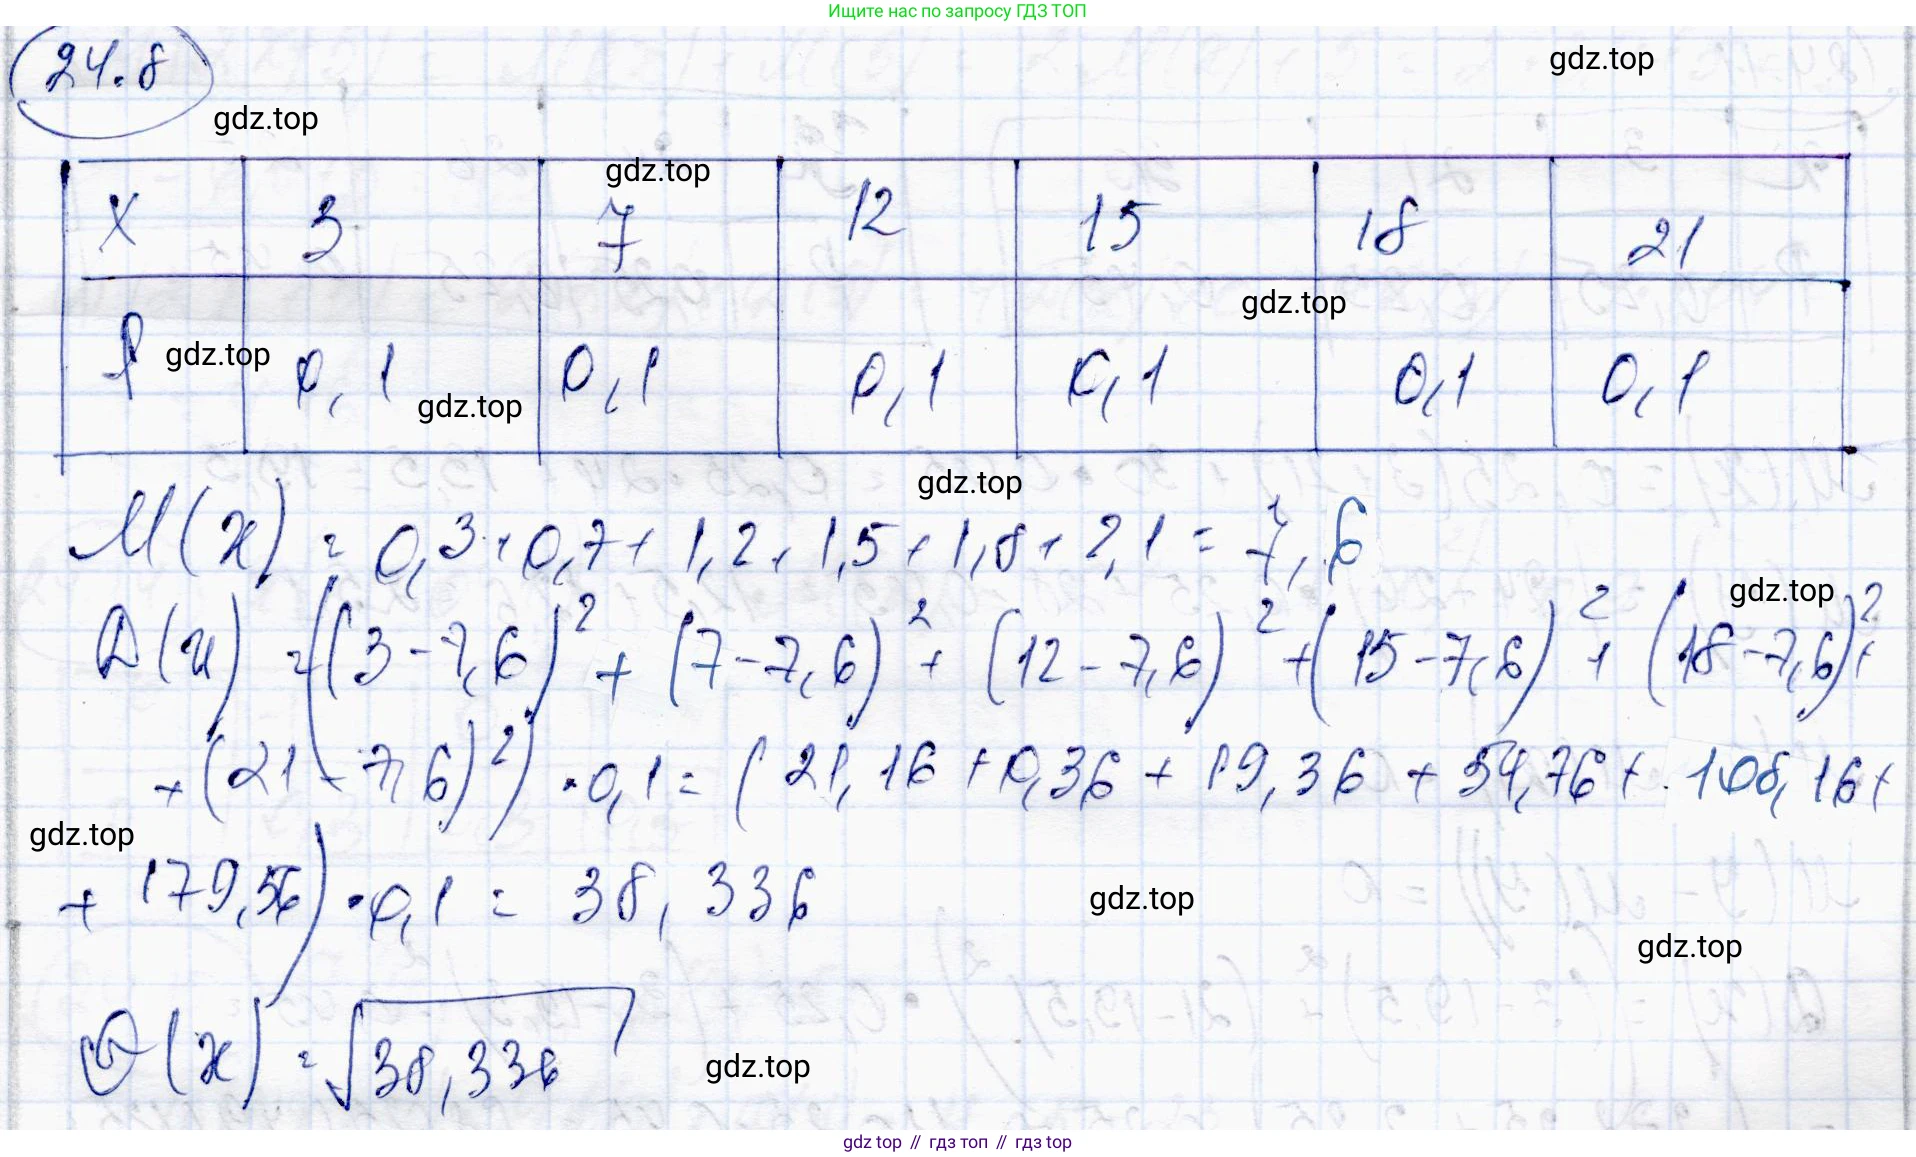 Ищите нас по запросу ГДЗ ТОП
24.8
gdz.top
gdz.top
gdz.top
X 3 7 12 15 18 21
gdz.top
P 0,1 0,1 0,1 0,1 0,1 0,1
gdz.top
gdz.top
gdz.top
M(x) = 0,3+0,7+1,2+1,5+1,8+2,1=7,6
gdz.top
D(x) =((3-7,6)²+(7-7,6)²+(12-7,6)²+(15-7,6)²+(18-7,6)²+
+(21-7,6)²)·0,1=(21,16+0,36+19,36+54,76+108,16+
gdz.top
+179,56)·0,1=38,336
gdz.top
gdz.top
σ(x)=√38,336
gdz.top
gdz top // гдз топ // гдз top